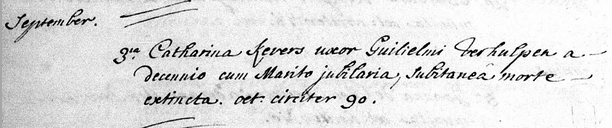 September.
3ia Catharina Kevers uxor Guilielmi Verhulpen a
decennio cum Marito jubilaria, subitaneâ morte
extincta. oet. circiter 90.